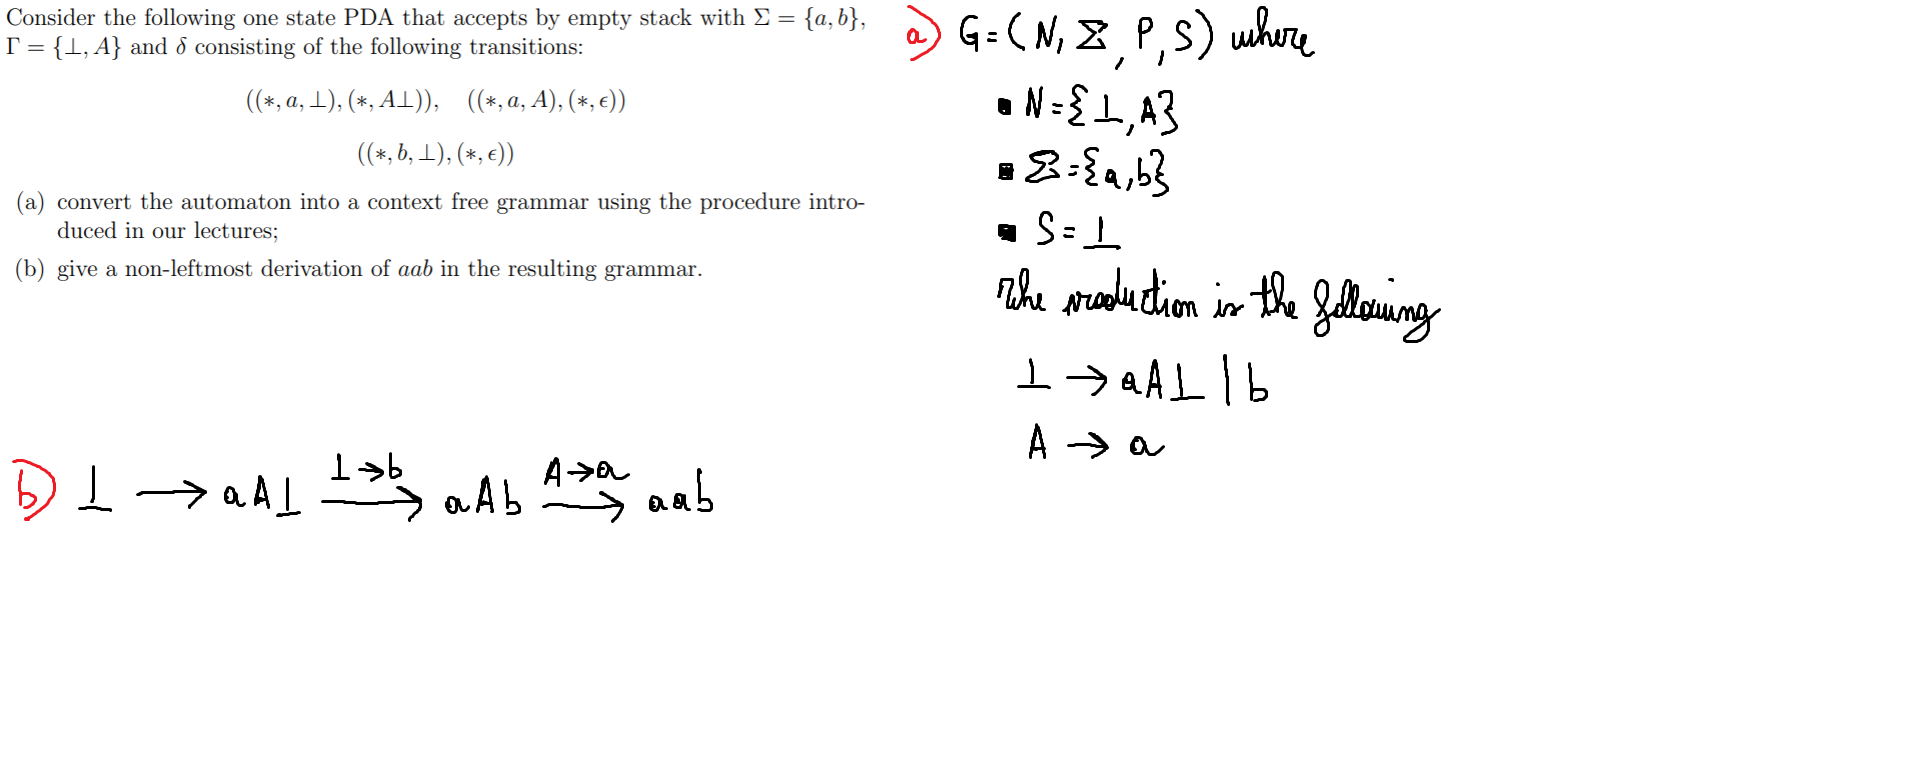 Consider the following one state PDA that accepts by empty stack with Σ = {a, b},
Γ = {⊥, A} and δ consisting of the following transitions:
((∗, a, ⊥), (∗, A⊥)), ((∗, a, A), (∗, ϵ))
((∗, b, ⊥), (∗, ϵ))
(a) convert the automaton into a context free grammar using the procedure intro-
duced in our lectures;
(b) give a non-leftmost derivation of aab in the resulting grammar.
a) G = (N, Σ, P, S) where
▪ N = {⊥, A}
▪ Σ = {a, b}
▪ S = ⊥
The production is the following
⊥ → aA⊥ | b
A → a
b) ⊥ → aA⊥ ⊥→b → aAb A→a → aab